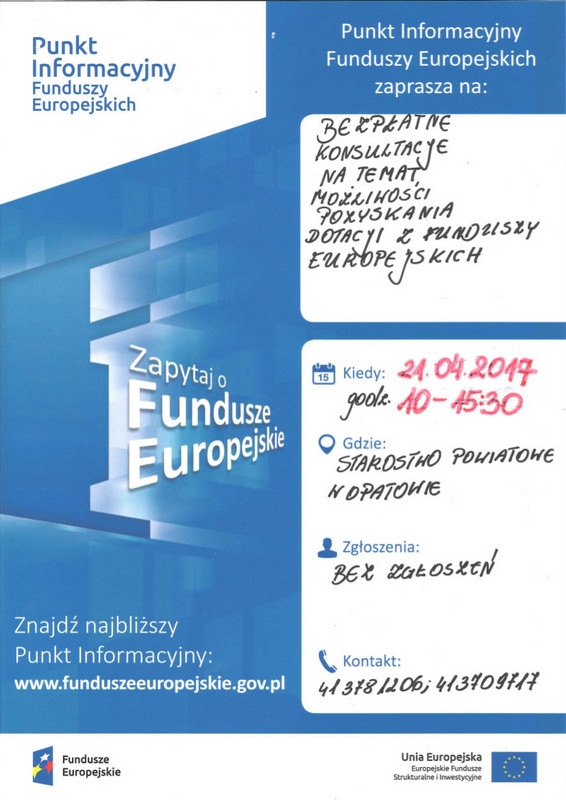 Punkt
Informacyjny
Funduszy
Europejskich
Punkt Informacyjny
Funduszy Europejskich
zaprasza na:
BEZPŁATNE
KONSULTACJE
NA TEMAT
MOŻLIWOŚCI
POZYSKANIA
DOTACJI Z FUNDUSZY
EUROPEJSKICH
Zapytaj o
Fundusze
Europejskie
15
Kiedy: 21.04.2017
godz. 10-15:30
Gdzie:
STAROSTWO POWIATOWE
W OPATOWIE
Zgłoszenia:
BEZ ZGŁOSZEŃ
Kontakt:
413781206; 413709717
Znajdź najbliższy
Punkt Informacyjny:
www.funduszeeuropejskie.gov.pl
Fundusze
Europejskie
Unia Europejska
Europejskie Fundusze
Strukturalne i Inwestycyjne